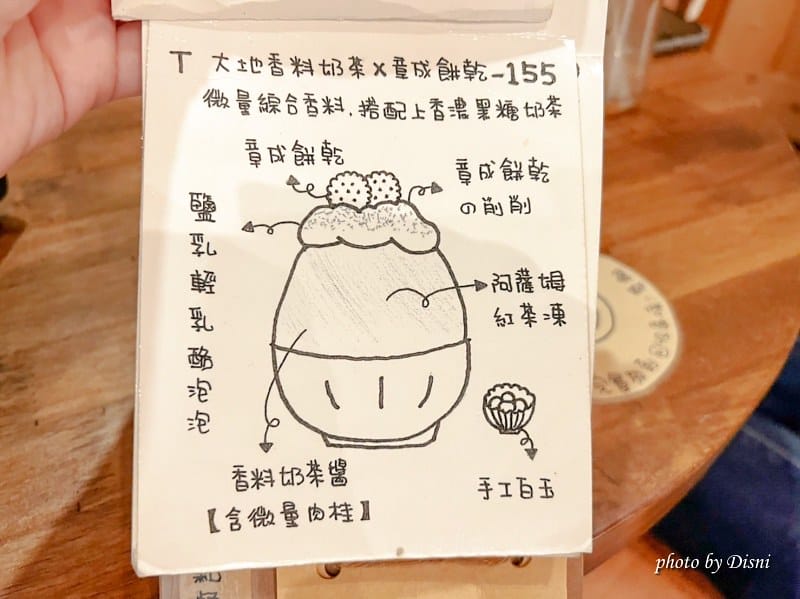 T 大地香料奶茶x章成餅乾-155
微量綜合香料.搭配上香濃黑糖奶茶
章成餅乾
章成餅乾
の削削
鹽乳輕乳酪泡泡
阿薩姆
紅茶凍
香料奶茶醬
【含微量肉桂】
手工白玉
photo by Disni